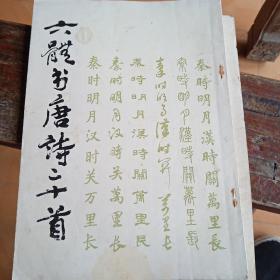 六體书唐詩二十首
秦時明月漢時關萬里長
秦時明月漢時關萬里長
秦时明月汉时关万里长
秦時明月漢時關萬里長
秦时明月汉时关萬里長
秦时明月汉时关万里长